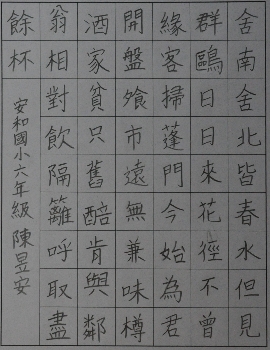 舍南舍北皆春水但見
群鷗日日來花徑不曾
緣客掃蓬門今始為君
開盤飧市遠無兼味樽
酒家貧只舊醅肯與鄰
翁相對飲隔籬呼取盡
餘杯
安和國小六年級 陳昱安